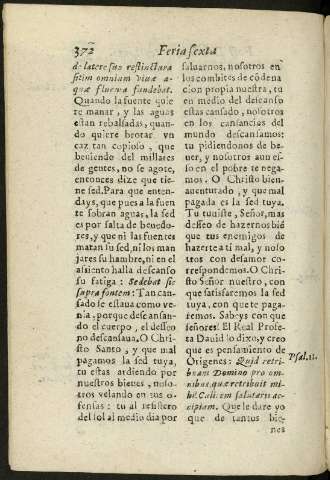 372 Feria sexta
de latere suo restinctura
sitim omnium viuæ a-
quæ fluenta fundebat.
Quando la fuente quie
re manar, y las aguas
estan rebalsadas, quan-
do quiere brotar vn
caz tan copioso, que
beuiendo del millares
de gentes, no se agote,
entonces dize que tie-
ne sed. Para que enten-
days, que pues a la fuen
te sobran aguas, la sed
es por falta de beuedo-
res, y que ni las fuentes
matan su sed, ni los man
jares su hambre, ni en el
assiento halla descanso
su fatiga: Sedebat sic
supra fontem: Tan can-
sado se estaua como ve-
nia, porque descansan-
do el cuerpo, el desseo
no descansaua. O Chri-
sto Santo, y que mal
pagamos la sed tuya,
tu estas ardiendo por
nuestros bienes, noso-
tros velando en tus o-
fensas: tu al resistero
del sol al medio dia por
saluarnos, nosotros en
los combites de cõdena
cion propia nuestra, tu
en medio del descanso
estas cansado, nosotros
en los cansancios del
mundo descansamos:
tu pidiendonos de be-
uer, y nosotros aun es-
so en el pobre te nega-
mos. O Christo bien-
auenturado, y que mal
pagada es la sed tuya.
Tu tuuiste, Señor, mas
desseo de hazernos biẽ
que tus enemigos de
hazerte a ti mal, y noso
tros con desamor co-
rrespondemos. O Chri-
sto Señor nuestro, con
que satisfaremos la sed
tuya, con que te paga-
remos. Sabeys con que
señores? El Real Profe-
ta Dauid lo dixo, y creo
que es pensamiento de
Origenes: Quid retri
buam Domino pro om-
nibus quæ retribuit mi-
hi? Calicem salutaris ac-
cipiam. Que le dare yo
que de tantos bie-
nes
Psal.